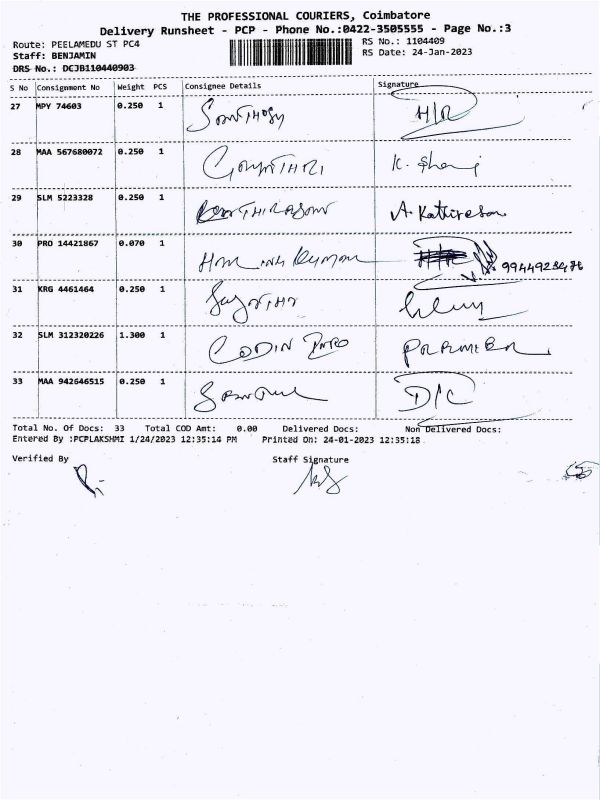 THE PROFESSIONAL COURIERS, Coimbatore
Delivery Runsheet - PCP - Phone No.:0422-3505555 - Page No.:3
Route: PEELAMEDU ST PC4 RS No.: 1104409
Staff: BENJAMIN RS Date: 24-Jan-2023
DRS No.: DCJB110440903
S No Consignment No Weight PCS Consignee Details Signature
27 MPY 74603 0.250 1 H/R
28 MAA 567680072 0.250 1 K.
29 SLM 5223328 0.250 1 A. Kathiresan
30 PRO 14421867 0.070 1
31 KRG 4461464 0.250 1
32 SLM 312320226 1.300 1 CODIN
33 MAA 942646515 0.250 1 D/C
Total No. Of Docs: 33 Total COD Amt: 0.00 Delivered Docs: Non Delivered Docs:
Entered By :PCPLAKSHMI 1/24/2023 12:35:14 PM Printed On: 24-01-2023 12:35:18
Verified By Staff Signature